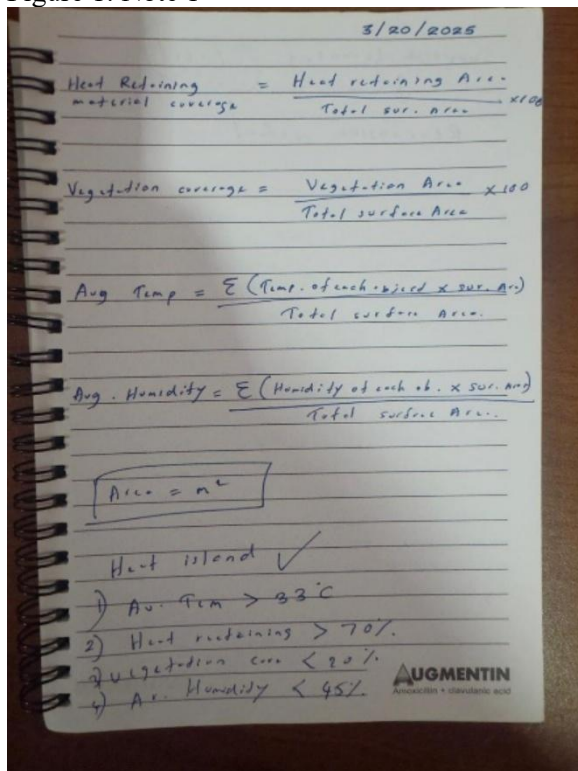 Figure 1. Note 1
3/20/2025
Heat Retaining = Heat retaining Area
material coverage Total sur. Area x100
Vegetation coverage = Vegetation Area x 100
Total surface Area
Avg Temp = Σ (Temp. of each object x sur. Are)
Total surface Area.
Avg. Humidity = Σ (Humidity of each ob. x sur. Area)
Total surface Area.
Area = m²
Heat island ✓
1) Av. Tem > 33°C
2) Heat reataining > 70%.
3) Vegetation cove < 20%.
4) Av. Humidity < 45%.
AUGMENTIN
Amoxicillin + clavulanic acid